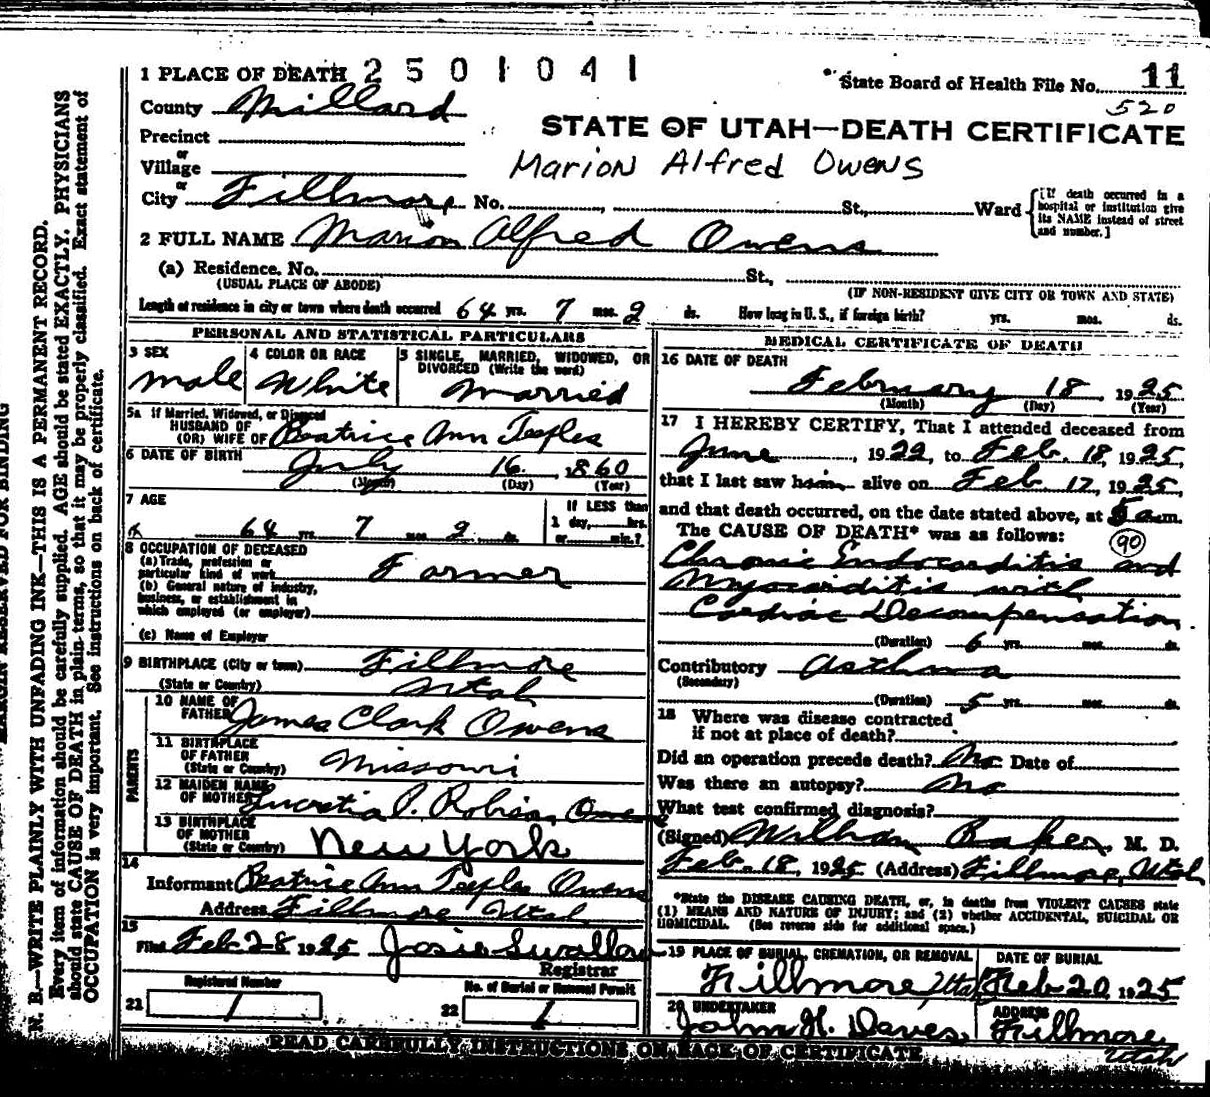 1 PLACE OF DEATH 2501041
State Board of Health File No. 11
County Millard
520
Precinct
STATE OF UTAH—DEATH CERTIFICATE
or
Village
Marion Alfred Owens
or
City Fillmore No. , St., Ward
[If death occurred in a hospital or institution give its NAME instead of street and number.]
2 FULL NAME Marion Alfred Owens
(a) Residence. No. St.,
(USUAL PLACE OF ABODE) (IF NON-RESIDENT GIVE CITY OR TOWN AND STATE)
Length of residence in city or town where death occurred 64 yrs. 7 mos. 2 ds. How long in U. S., if foreign birth? yrs. mos. ds.
PERSONAL AND STATISTICAL PARTICULARS
3 SEX
male
4 COLOR OR RACE
White
5 SINGLE, MARRIED, WIDOWED, OR
DIVORCED (Write the word)
married
5a If Married, Widowed, or Divorced
HUSBAND OF
(OR) WIFE OF Beatrice Ann Teeples
6 DATE OF BIRTH July 16 1860
(Month) (Day) (Year)
7 AGE
If LESS than
64 yrs. 7 2 ds. 1 day, hrs.
or min.?
8 OCCUPATION OF DECEASED
(a) Trade, profession or
particular kind of work Farmer
(b) General nature of industry,
business, or establishment in
which employed (or employer)
(c) Name of Employer
9 BIRTHPLACE (City or town) Fillmore
(State or Country) Utah
PARENTS
10 NAME OF
FATHER James Clark Owens
11 BIRTHPLACE
OF FATHER
(State or Country) Missouri
12 MAIDEN NAME
OF MOTHER Lucretia P. Robison Owens
13 BIRTHPLACE
OF MOTHER
(State or Country) New York
14
Informant Beatrice Ann Teeples Owens
Address Fillmore Utah
15
Filed Feb 28 1925 Josie Swallow
Registrar
Registered Number
21 1
No. of Burial or Removal Permit
22 1
MEDICAL CERTIFICATE OF DEATH
16 DATE OF DEATH
February 18 1925
(Month) (Day) (Year)
17 I HEREBY CERTIFY, That I attended deceased from
June , 1922, to Feb. 18, 1925,
that I last saw him alive on Feb 17, 1925,
and that death occurred, on the date stated above, at 5 a.m.
The CAUSE OF DEATH* was as follows: 90
Chronic Endocarditis and
Myocarditis with
Cardiac Decompensation.
(Duration) 6 yrs. mos. ds.
Contributory Asthma
(Secondary)
(Duration) 5 yrs. mos. ds.
18 Where was disease contracted
if not at place of death?
Did an operation precede death? No Date of
Was there an autopsy? No
What test confirmed diagnosis?
(Signed) Baker, M. D.
Feb. 18, 1925 (Address) Fillmore, Utah
*State the DISEASE CAUSING DEATH, or, in deaths from VIOLENT CAUSES state
(1) MEANS AND NATURE OF INJURY; and (2) whether ACCIDENTAL, SUICIDAL OR
HOMICIDAL. (See reverse side for additional space.)
19 PLACE OF BURIAL, CREMATION, OR REMOVAL
Fillmore Utah
DATE OF BURIAL
Feb 20, 1925
20 UNDERTAKER
John H. Davies
ADDRESS
Fillmore
Utah
READ CAREFULLY INSTRUCTIONS ON BACK OF CERTIFICATE
MARGIN RESERVED FOR BINDING
N. B.—WRITE PLAINLY WITH UNFADING INK—THIS IS A PERMANENT RECORD.
Every item of information should be carefully supplied. AGE should be stated EXACTLY. PHYSICIANS
should state CAUSE OF DEATH in plain terms, so that it may be properly classified. Exact statement of
OCCUPATION is very important. See instructions on back of certificate.